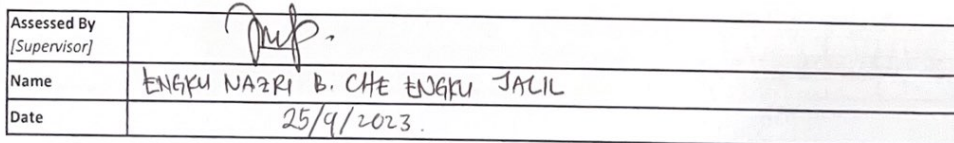 Assessed By
[Supervisor]
Name ENGKU NAZRI B. CHE ENGKU JALIL
Date 25/9/2023.